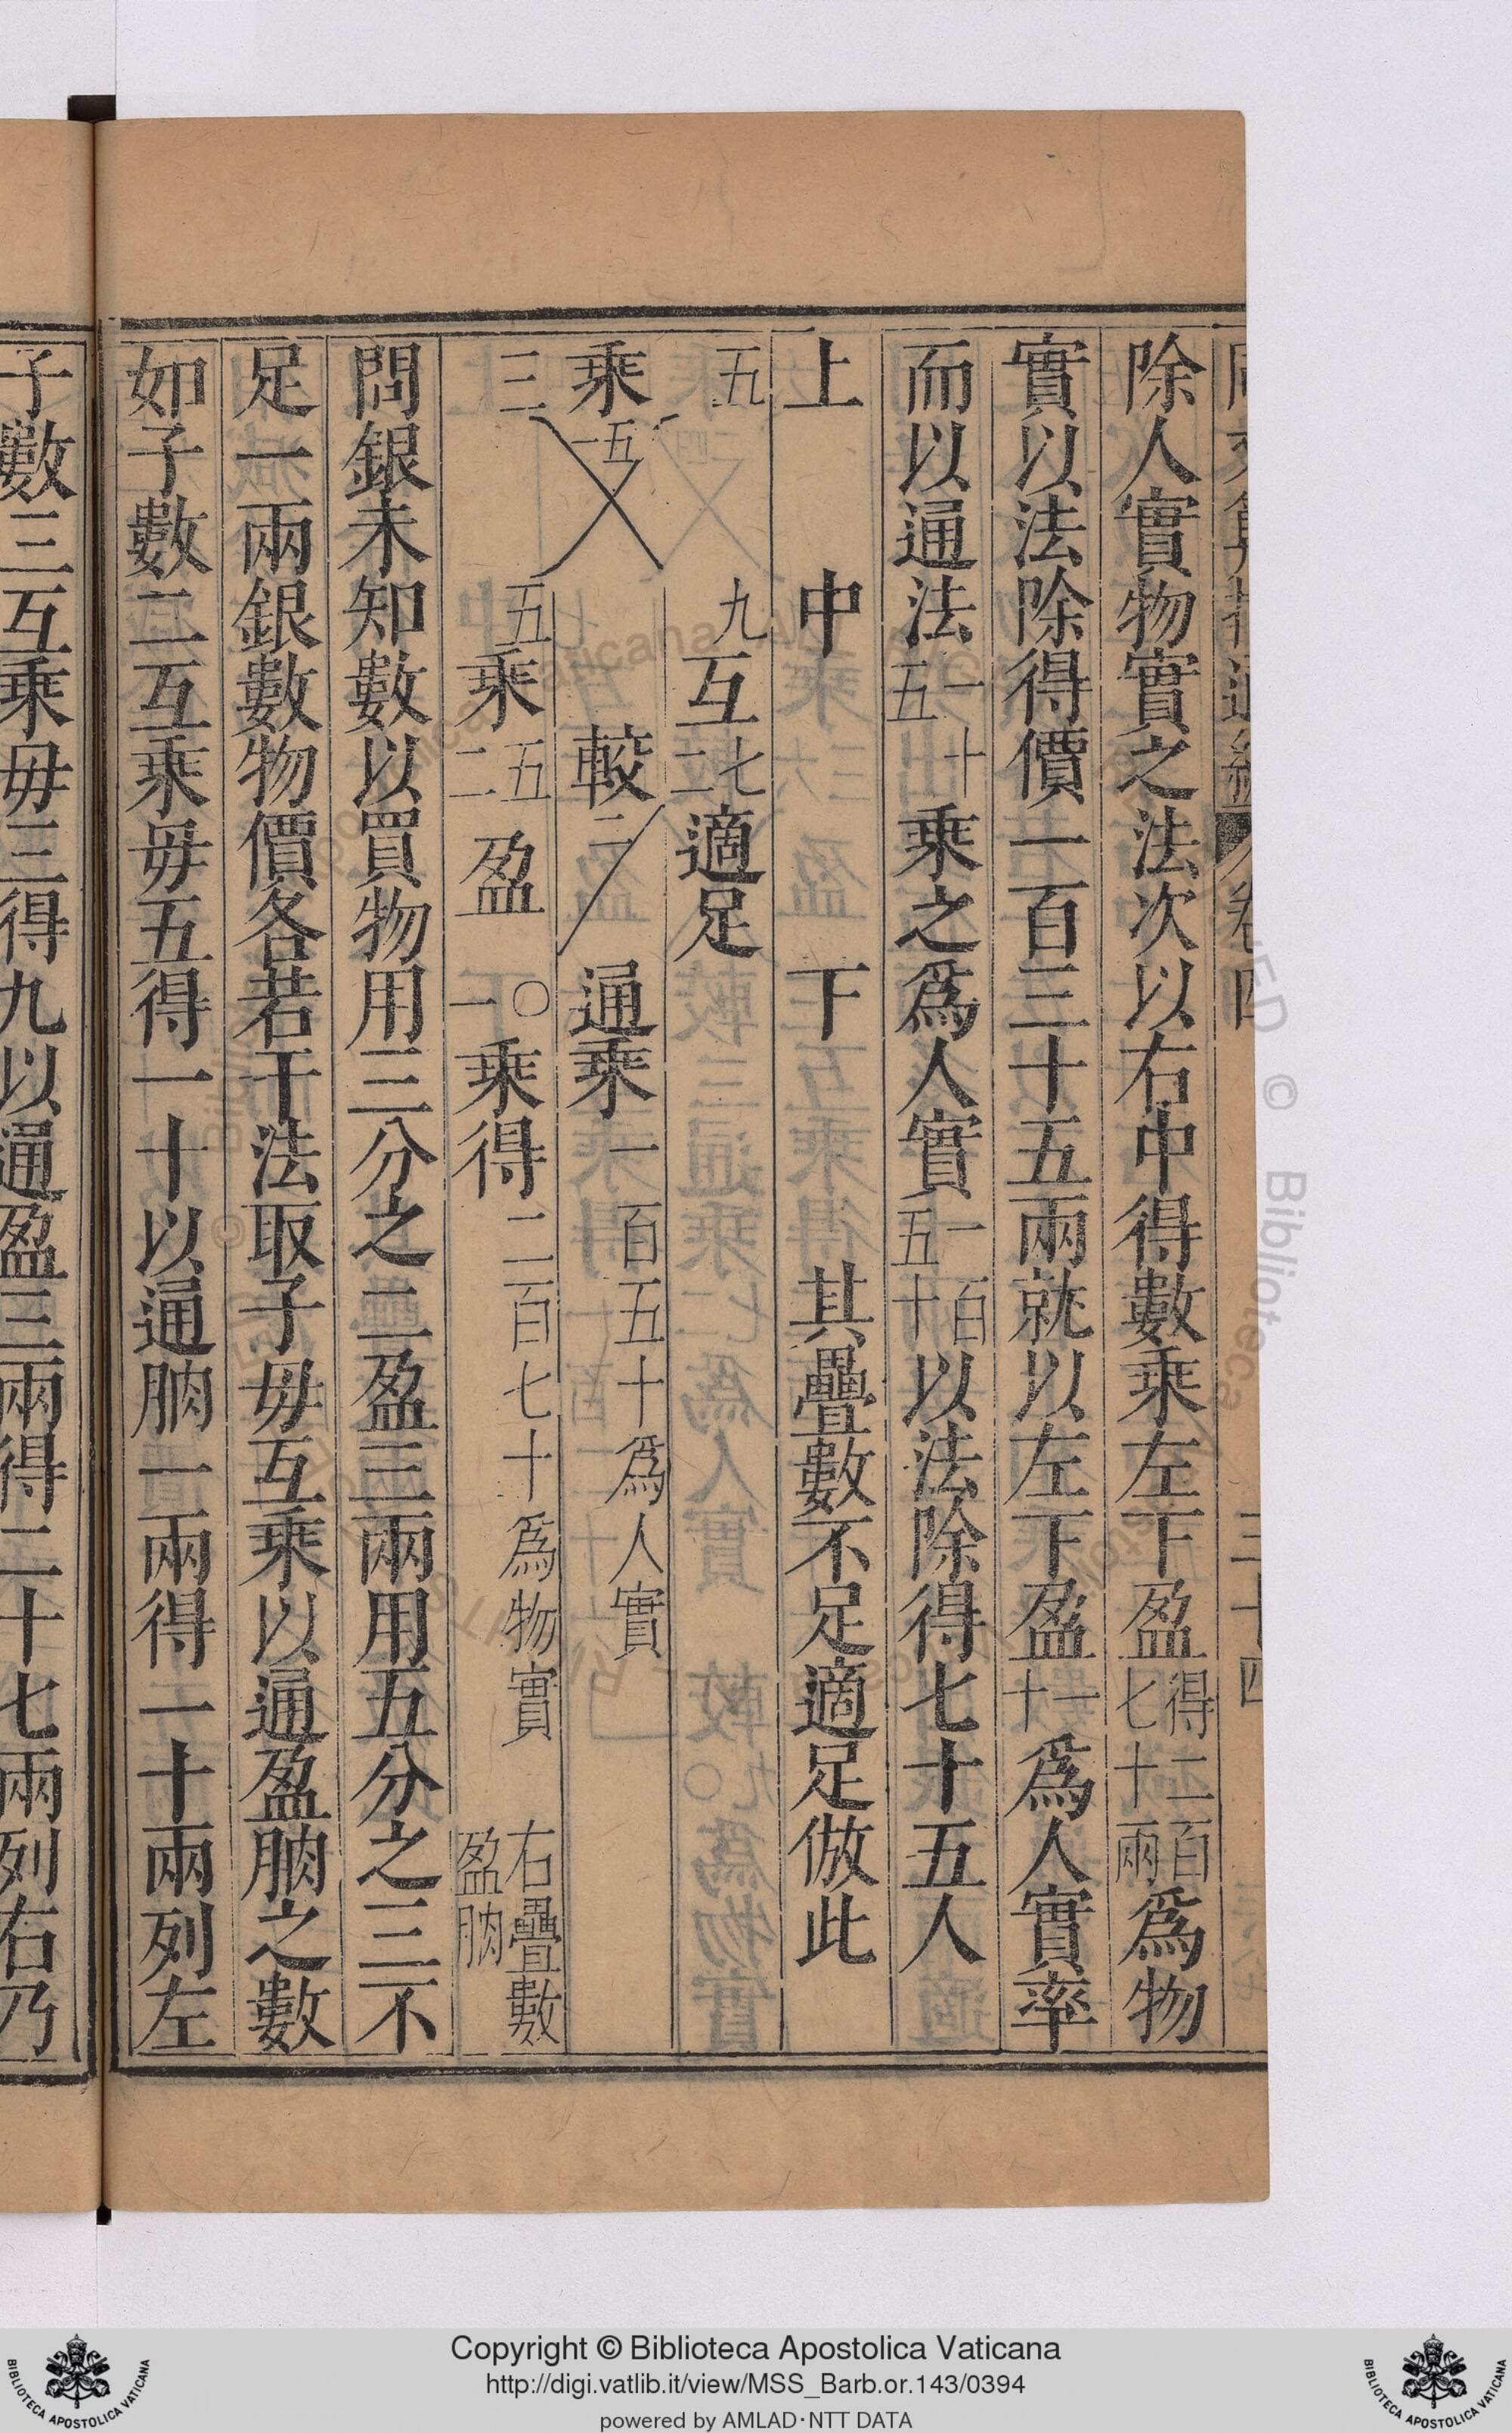 卷四
除人實物實之法次以右中得數乘左下盈得二百七十兩爲物
實以法除得價一百三十五兩就以左下盈一十爲人實率
而以通法一十五乘之爲人實一百五十以法除得七十五人
上 中 下 其疊數不足適足倣此
五 九互七二適足
乘 五一 較二 通乘一百五十爲人實
三 五乘五二盈 〇一乘得二百七十爲物實 右疊數盈朒
問銀未知數以買物用三分之二盈三兩用五分之三不
足一兩銀數物價各若干法取子毋互乘以通盈朒之數
如子數二互乘毋五得一十以通朒一兩得一十兩列左
子數三互乘毋三得九以通盈三兩得二十七兩列右乃
Copyright © Biblioteca Apostolica Vaticana
http://digi.vatlib.it/view/MSS_Barb.or.143/0394
powered by AMLAD·NTT DATA
BIBLIOTECA APOSTOLICA VATICANA
BIBLIOTECA APOSTOLICA VATICANA